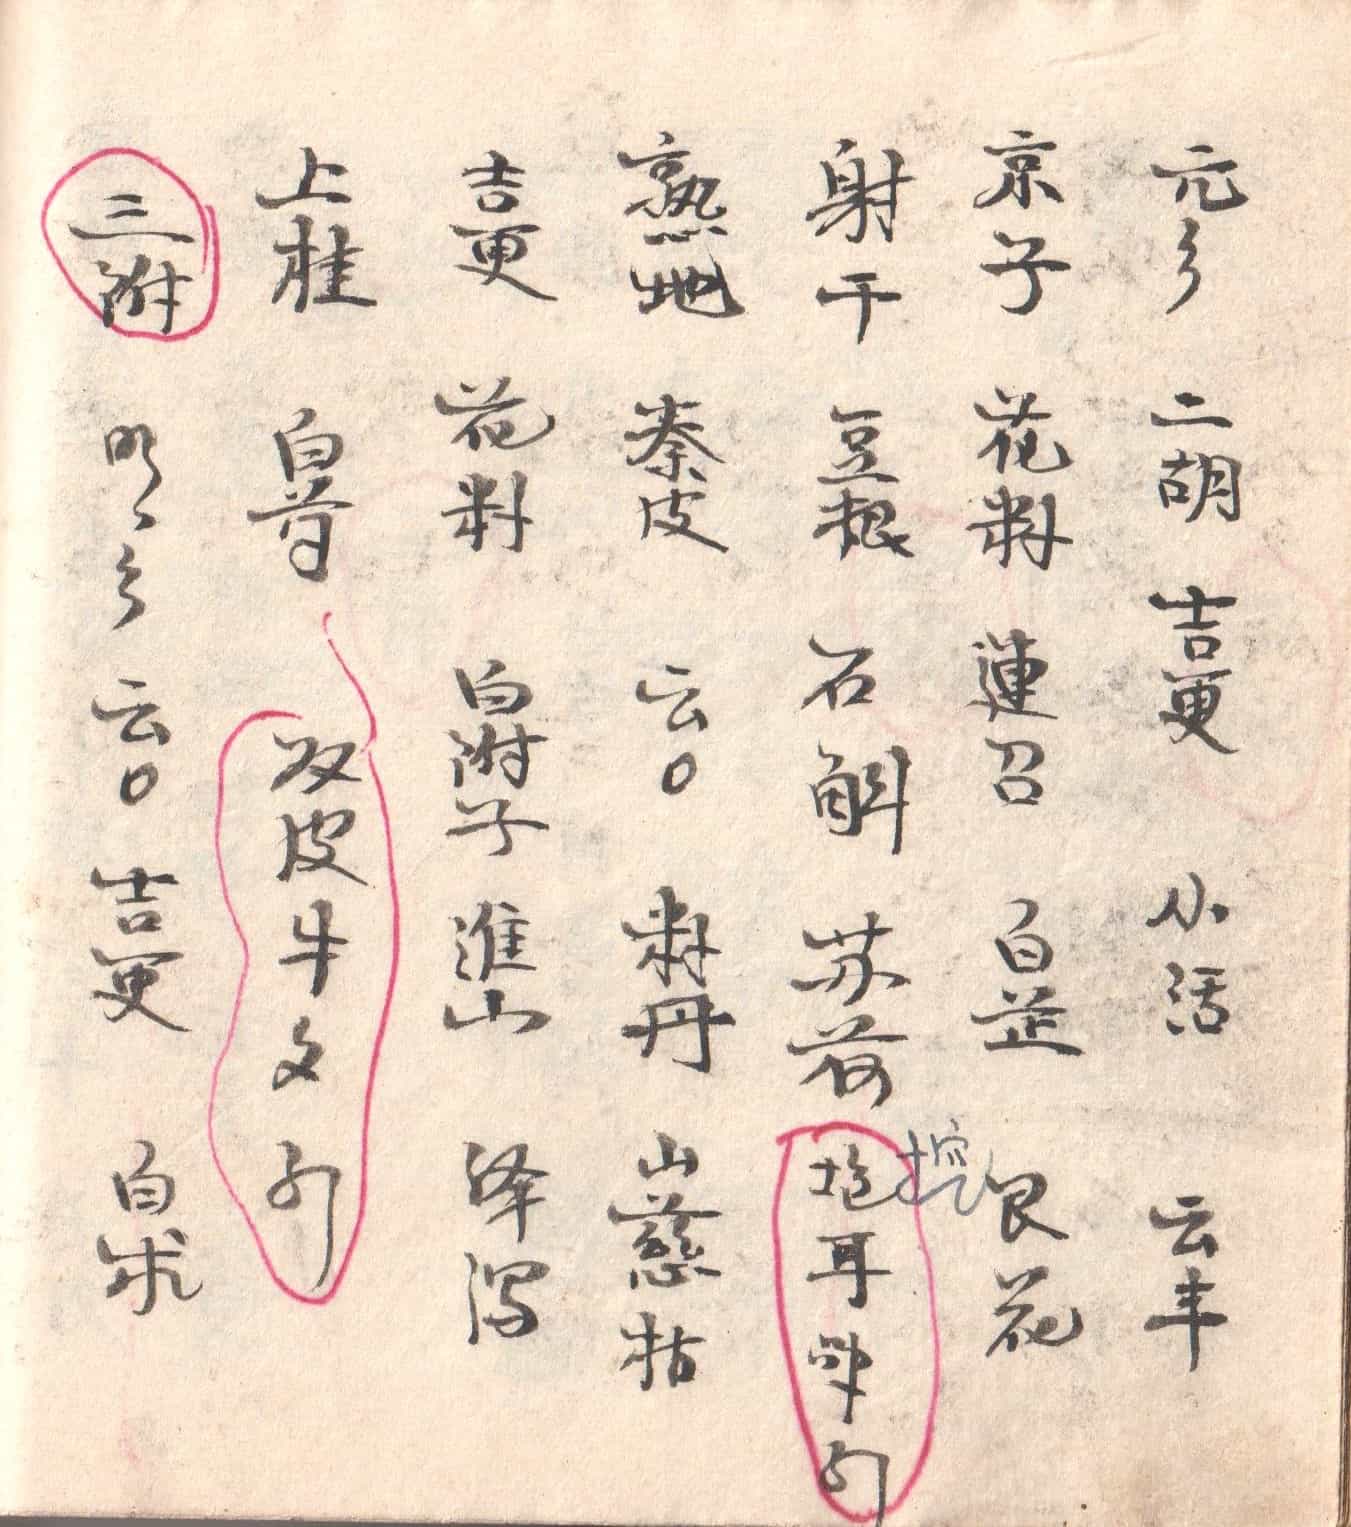 元彡 二胡 吉更 小活 云丰
京子 花料 蓮召 白芷 艮花
射干 豆根 石斛 苏荷 挖 耳
熟地 秦皮 云〇 料丹 山慈枯
吉更 花料 白附子 淮山 泽泻
上桂 白芍 双皮牛文
三附 云〇 吉更 白术
挖